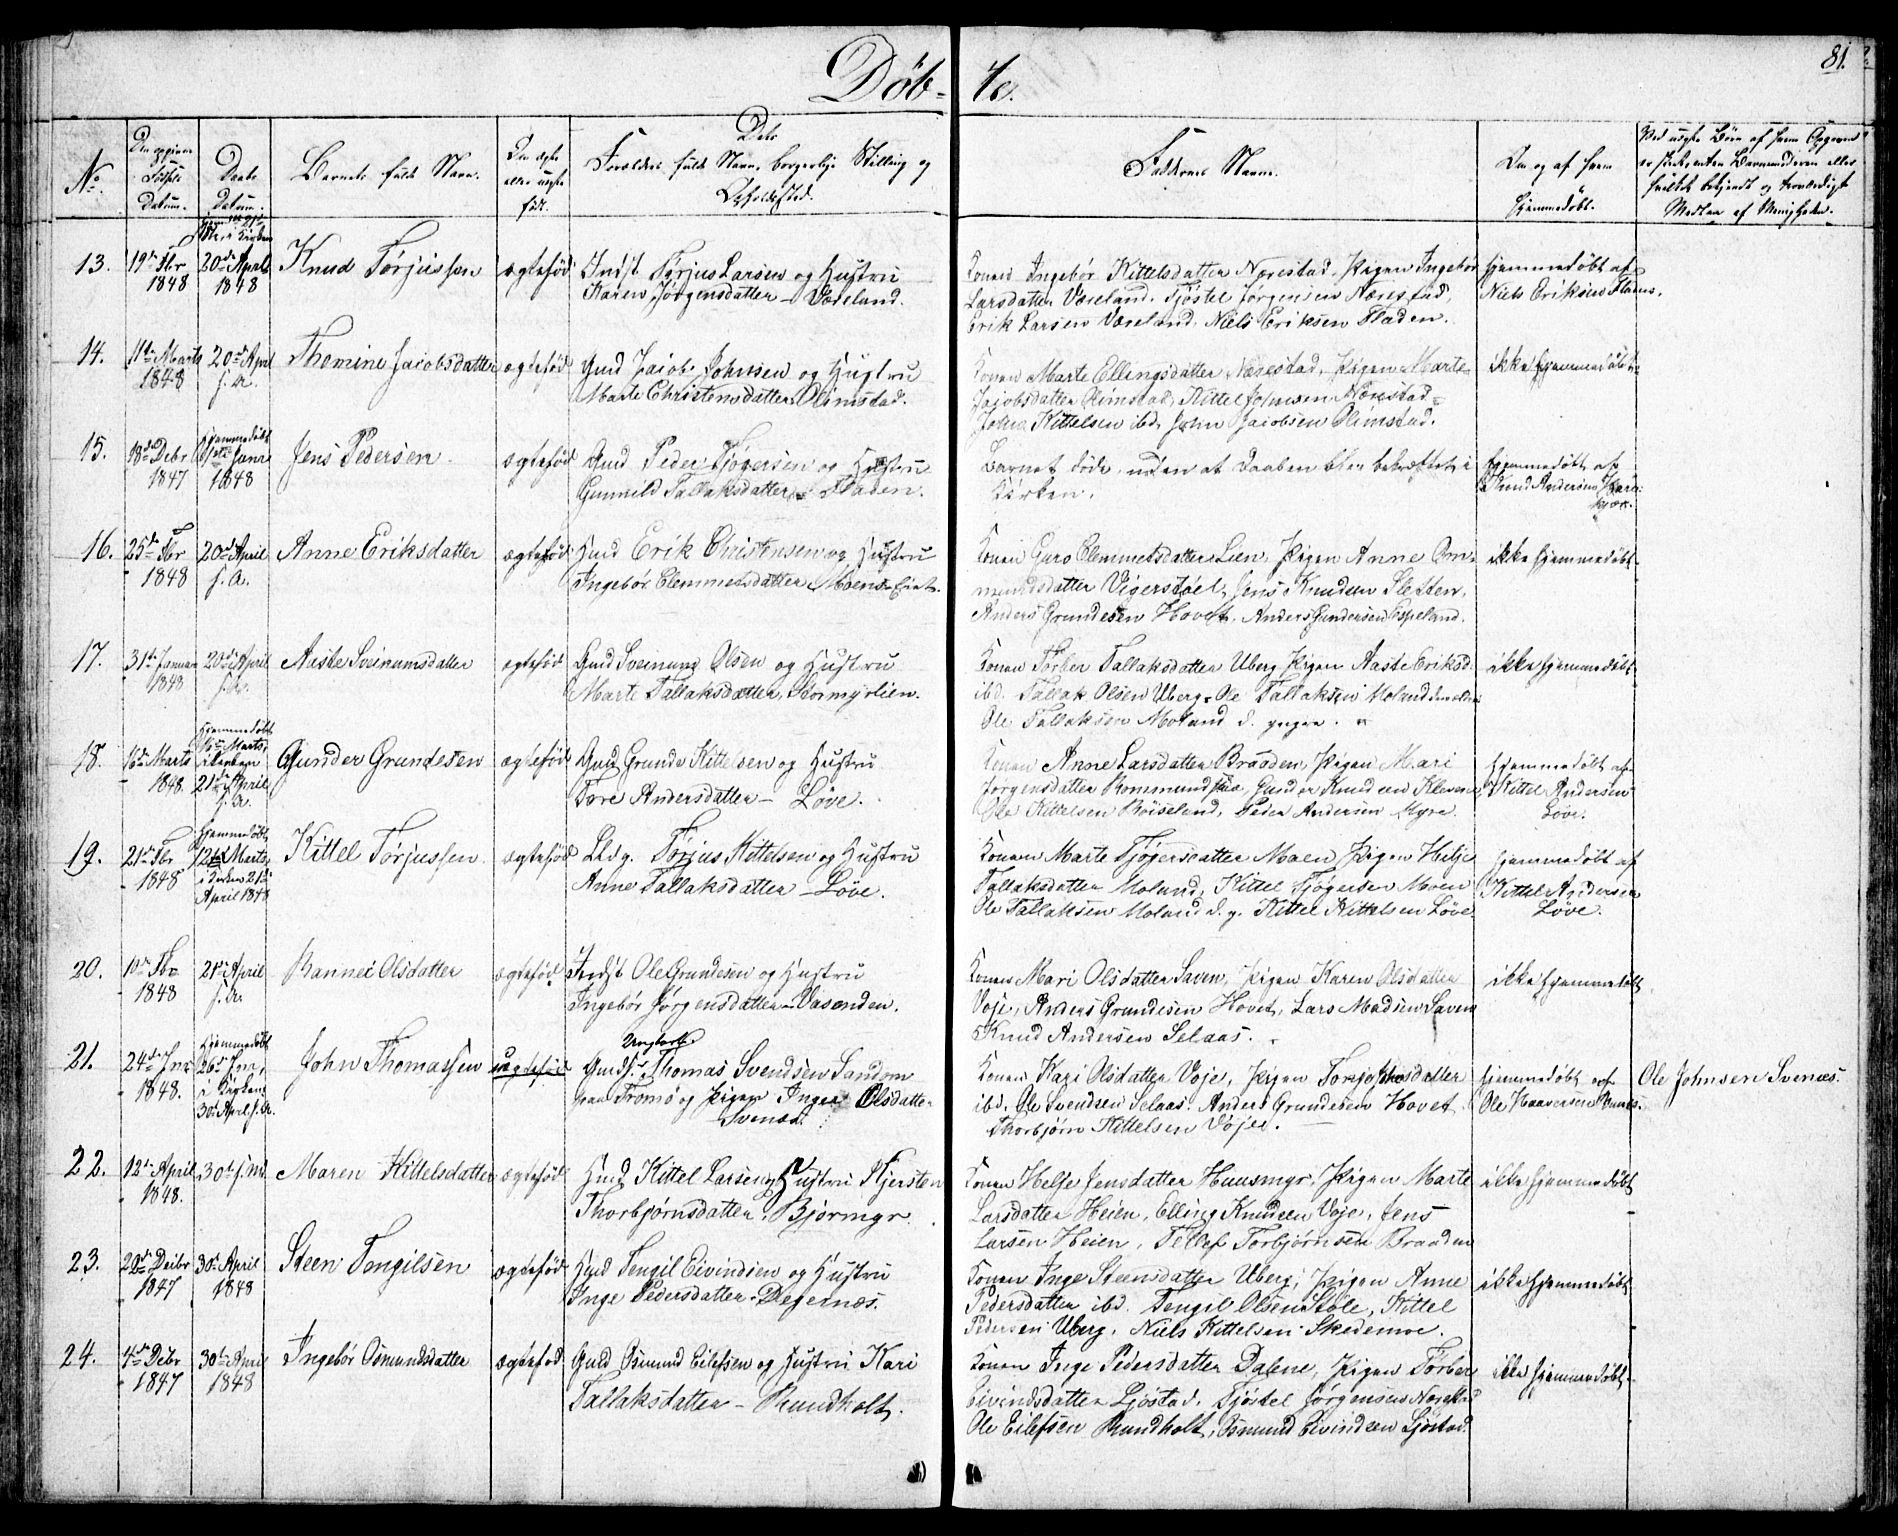 Døb- te.
81.
No.
Den opgivne Fødsels Datum.
Daabs Datum.
Barnets fulde Navn.
Om ægte eller uægte født.
Dets Forældres fulde Navn, borgerlige Stilling og Opholdssted.
Faddernes Navne.
Om og af hvem hjemmedøbt.
Med uægte Børn af hvem Opgaven er skeet, enten Barnemoderen eller hvilket bekjendt og troværdigt Medlem af Menigheden.
13. 19de Fbr 1848 20de April 1848 Knud Tørjussen ægtefød Indst Tørjus Larsen og Hustru
Karen Jørgensdatter - Væreland.
Konen Ingebór Kittelsdatter Nærestad, Pigen Ingebór
Larsdatter Væreland. Tjöstel Jörgensen Nærestad,
Erik Larsen Væreland, Niels Eriksen Fladen.
hjemmedøbt af
Niels Eriksen Fladen.
14. 11te Marts 1848 20de April s. A. Themine Jacobsdatter ægtefød Gmd Jacob Johnsen og Hustru
Marte Christensdatter Olimstad.
Konen Marte Ellingsdatter Nærestad, Pigen Marte
Jacobsdatter Olimstad, Kittel Johnsen Nærestad
John Kittelsen ibd, John Jacobsen Olimstad.
ikke hjemmedøbt
15. 18de Debr 1847 hjemmedøbt Janr 1848 Jens Pedersen ægtefød Gmd Peder Tjøgersen og Hustru
Gunnild Tallaksdatter - Fladen.
Barnet døde, uden at Daaben blev bekræftet i
Kirken.
hjemmedøbt af
Knud Andersen
16. 25de Fbr 1848 20de April s. A. Anne Eriksdatter ægtefød Hmd Erik Christensen og Hustru
Ingebór Clemmetsdatter Moens Eiet.
Konen Guro Clemmetsdatter Lien, Pigen Anne Om-
mundsdatter Vigerstøel, Jens Knudsen Sletten,
Anders Grundesen Hovet, Anders Gundersen Espeland.
ikke hjemmedøbt
17. 31te Januar 1848 20de April s. A. Aaste Sveinumsdatter ægtefød Gmd Sveinung Olsen og Hustru
Marte Tallaksdatter Stormyrlien.
Konen Torber Tallaksdatter Uberg, Pigen Aaste Eriksd.
ibd. Tallak Olsen Uberg, Ole Tallaksen Moland den eldre
Ole Tallaksen Moland d. yngre.
ikke hjemmedøbt
18. 16de Marts 1848 hjemmedøbt Marts, i Kirken 21de April s. A. Gunder Grundesen ægtefød Gmd Grunde Kittelsen og Hustru
Tore Andersdatter - Løve.
Konen Anne Larsdatter Braaden, Pigen Mari
Jørgensdatter Rommundstue, Gunder Knudsen Kleven
Ole Kittelsen Röiseland, Peder Andersen Myre.
hjemmedøbt af
Kittel Andersen
Løve.
19. 21de Fbr 1848 hjemmedøbt Marts, i Kirken 21de April 1848 Kittel Tørjussen ægtefød Tørjus Kittelsen og Hustru
Anne Tallaksdatter - Løve.
Konen Marte Tjøgersdatter Moen, Pigen Helje
Tallaksdatter Moland, Kittel Tjøgersen Moen
Ole Tallaksen Moland d. y. Kittel Kittelsen Løve.
hjemmedøbt af
Kittel Andersen
Løve.
20. Fbr 1848 21de April s. A. Rannei Olsdatter ægtefød Indst Ole Grundesen og Hustru
Ingebór Jørgensdatter - Vasenden.
Konen Mari Olsdatter Saven, Pigen Karen Olsdatter
Voje, Anders Grundesen Hovet, Lars Madsen Saven
Knud Andersen Selaas.
ikke hjemmedøbt
21. 24de 1848. hjemmedøbt 26de i Kirken 30te April s. A. John Thomassen uægtefød Ungkarl
Thomas Svendsen Sandom
paa Tromø og Pigen Inger Olsdatter
Svenæs.
Konen Kari Olsdatter Voje, Pigen Torjo
ibd. Ole Svendsen Selaas. Anders Grundesen Hovet.
Thorbjørn Kittelsen Vøje.
hjemmedøbt af
Ole Haaversen
Ole Johnsen Svenæs.
22. 12te April 1848. 30te Maren Kittelsdatter ægtefød Hmd Kittel Larsen og Hustru Kjersten
Thorbjørnsdatter, Bjørmyr.
Konen Helje Jensdatter Huusmyr, Pigen Marte
Larsdatter Heien, Elling Knudsen Voje, Jens
Larsen Heien, Tellef Torbjørnsen Braaden
ikke hjemmedøbt
23. 22de Decbr 1847 30te April 1848 Steen Tengilsen ægtefød Hmd Tengil Eivindsen og Hustru
Inge Pedersdatter - Degernæs.
Konen Inge Steensdatter Uberg, Pigen Anne
Pedersdatter ibd. Tengil Olsen Støle, Kittel
Pedersen Uberg, Niels Kittelsen Skedemoe.
ikke hjemmedøbt
24. 4de Debr 1847 30te April 1848 Ingebór Osmundsdatter ægtefød Gmd Osmund Eilefsen og Hustru Kari
Tallaksdatter - Rundholt.
Konen Inge Pedersdatter Dalene, Pigen Torber
Eivindsdatter Ljøstad, Tjöstel Jørgensen Nærestad
Ole Eilefsen Rundholt, Osmund Eivindsen Ljøstad.
ikke hjemmedøbt